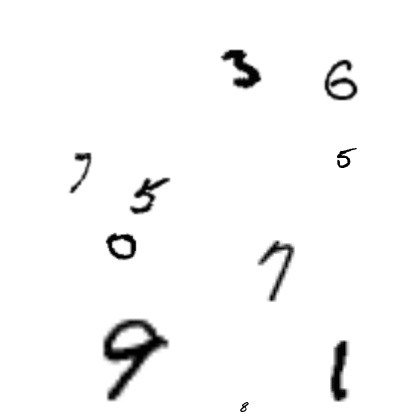 3 6
7 5 5
0 7
9 1
8